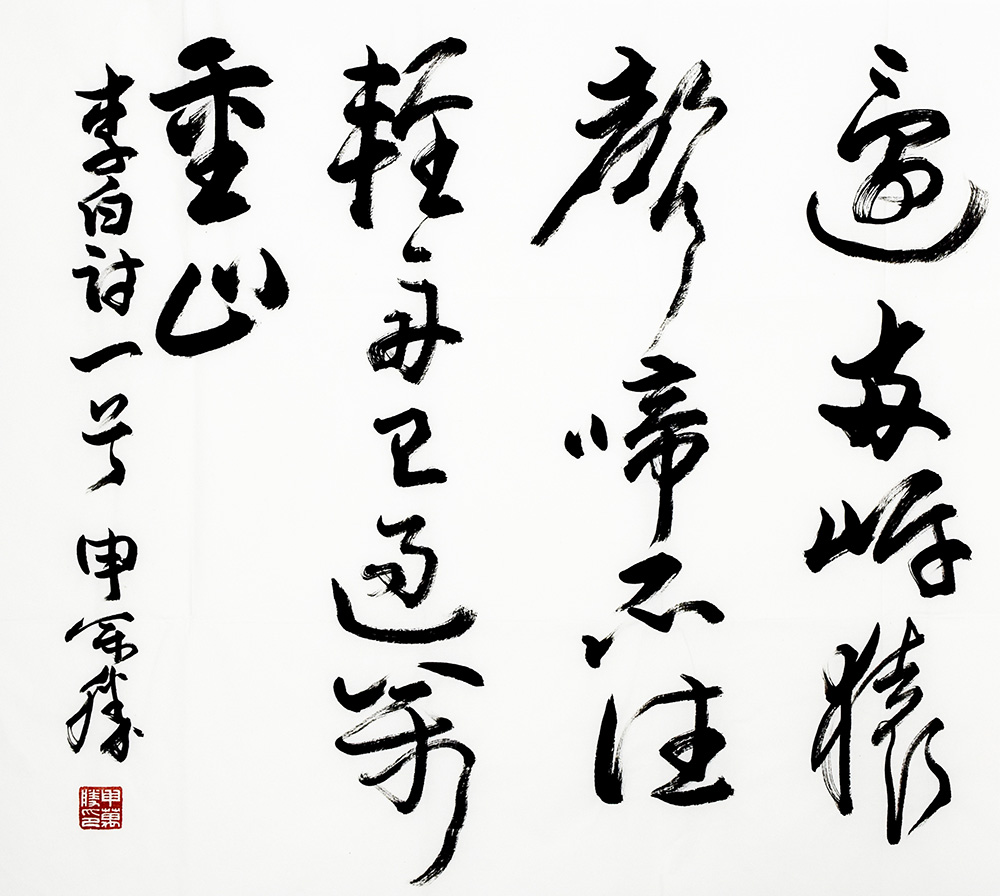 還兩岸猿
聲啼不住
輕舟已過萬
重山
李白詩一首 申萬勝
申萬勝印